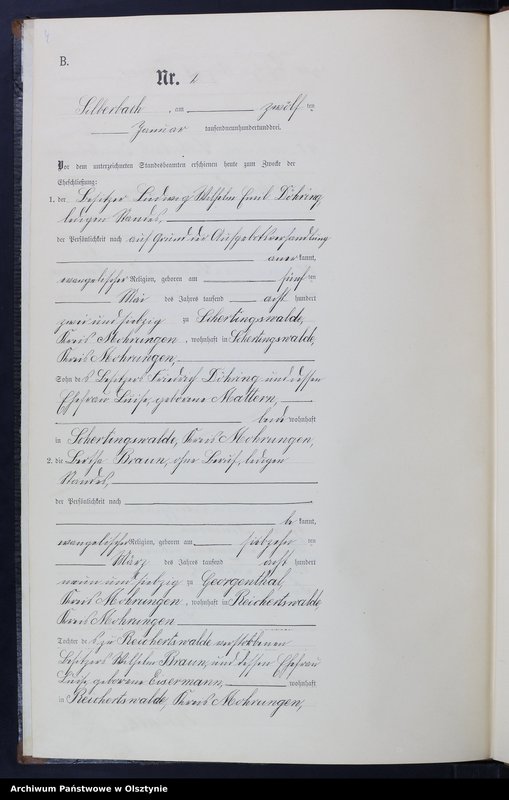 4
B.
Nr. 1.
Silberbach, am zwölften
Januar tausendneunhundertunddrei.
Vor dem unterzeichneten Standesbeamten erschienen heute zum Zwecke der
Eheschließung:
1. der Besitzer Ludwig Wilhelm Emil Döhring,
ledigen Standes,
der Persönlichkeit nach auf Grund der Aufgebotsverhandlung
anerkannt,
evangelischer Religion, geboren am fünften
Mai des Jahres tausend acht hundert
zwei und siebzig zu Schertingswalde,
Kreis Mohrungen, wohnhaft in Schertingswalde,
Kreis Mohrungen,
Sohn des Besitzers Friedrich Döhring und dessen
Ehefrau Luise, geborene Mattern,
beide wohnhaft
in Schertingswalde, Kreis Mohrungen,
2. die Bertha Braun, ohne Beruf, ledigen
Standes,
der Persönlichkeit nach
bekannt,
evangelischer Religion, geboren am siebzehnten
März des Jahres tausend acht hundert
neun und siebzig zu Georgenthal,
Kreis Mohrungen, wohnhaft in Reichertswalde,
Kreis Mohrungen
Tochter des zu Reichertswalde verstorbenen
Besitzers Wilhelm Braun, und dessen Ehefrau
Luise, geborene Eisermann, wohnhaft
in Reichertswalde, Kreis Mohrungen,
Archiwum Państwowe w Olsztynie